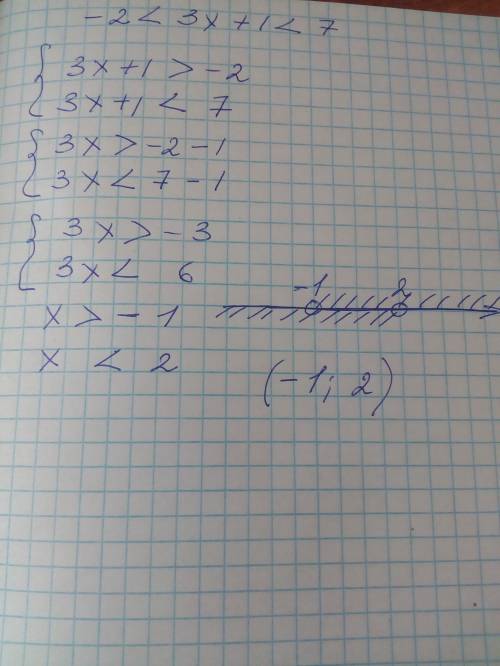 -2 < 3x + 1 < 7
{ 3x + 1 > -2
3x + 1 < 7
{ 3x > -2 - 1
3x < 7 - 1
{ 3x > -3
3x < 6
x > -1
x < 2
-1 2
(-1; 2)